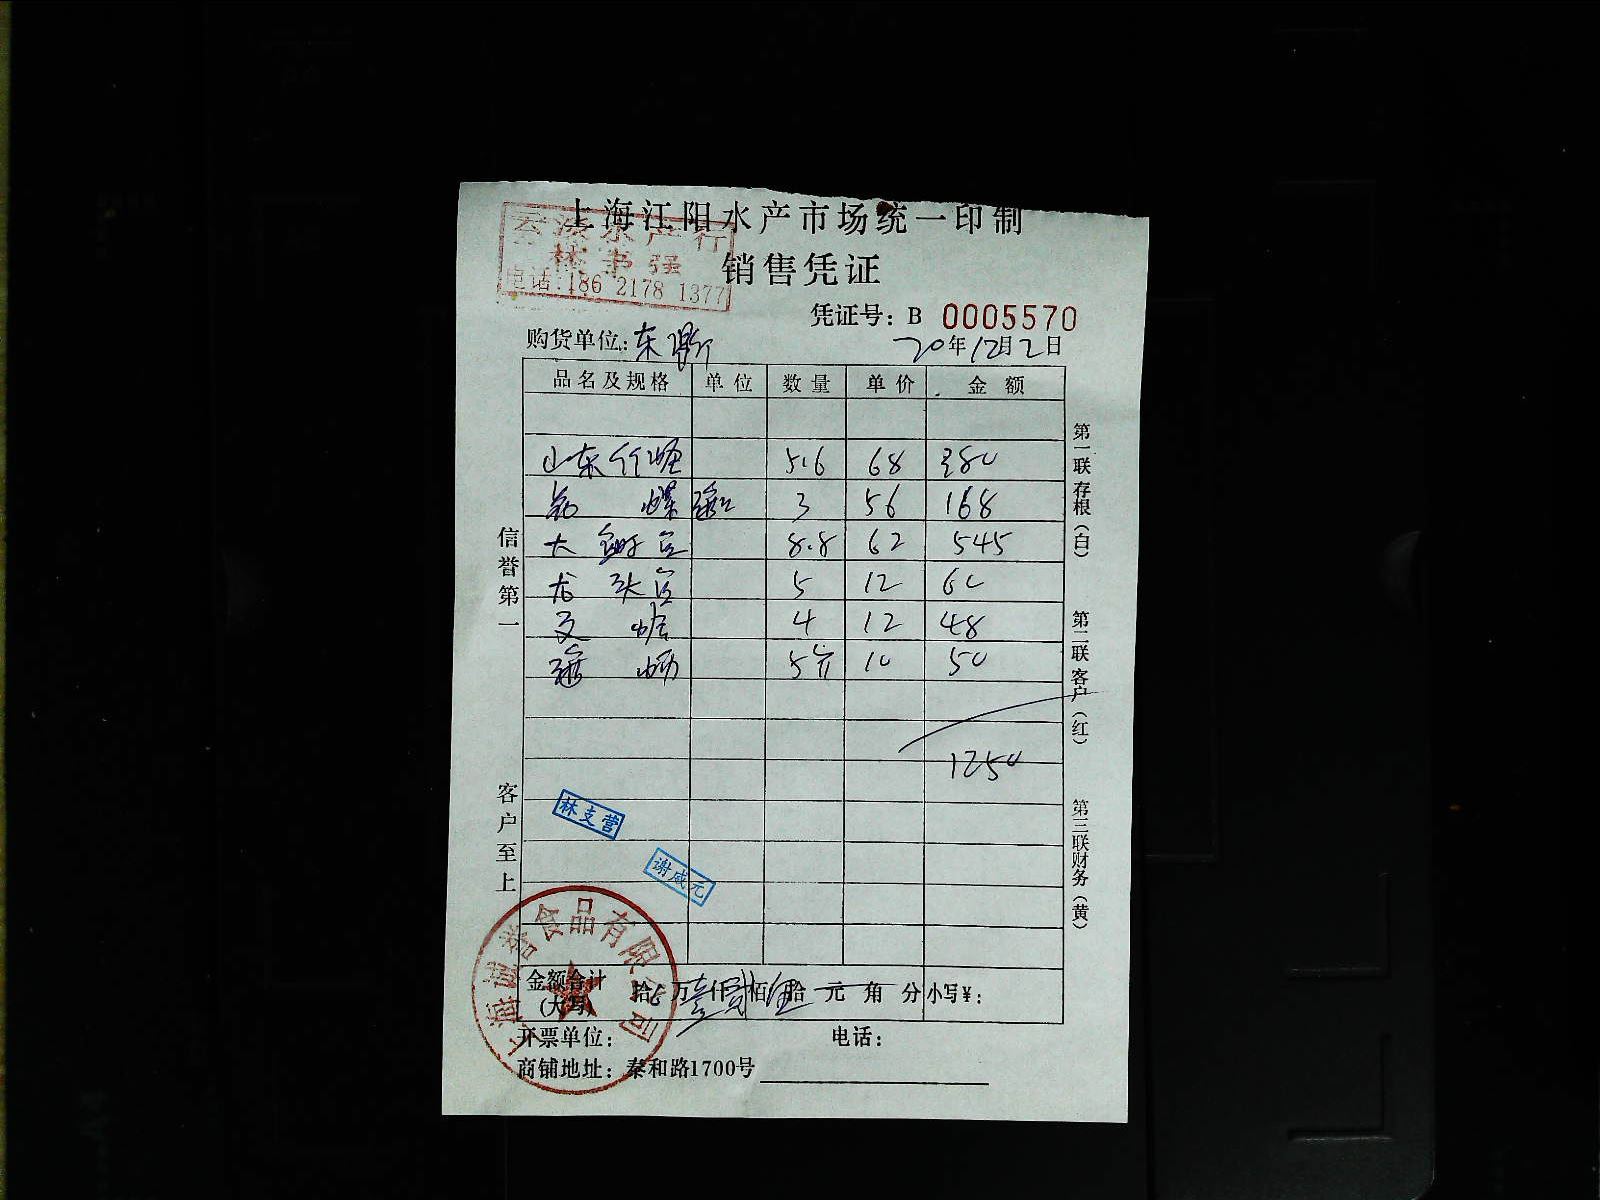 上海江阳水产市场统一印制
水产行
强
电话:186 2178 1377
销售凭证
凭证号：B 0005570
购货单位：东
20年12月2日
品名及规格 单位 数量 单价 金额
山东 5.6 68 380
3 56 168
大 8.8 62 545
龙头 5 12 60
4 12 48
5斤 10 50
1250
信誉第一
客户至上
第一联存根（白）
第二联客户（红）
第三联财务（黄）
林支营
谢威元
上海诚誉食品有限公司
金额合计(大写) 拾 万壹仟贰佰伍拾 元 角 分 小写¥：
开票单位： 电话：
商铺地址：泰和路1700号